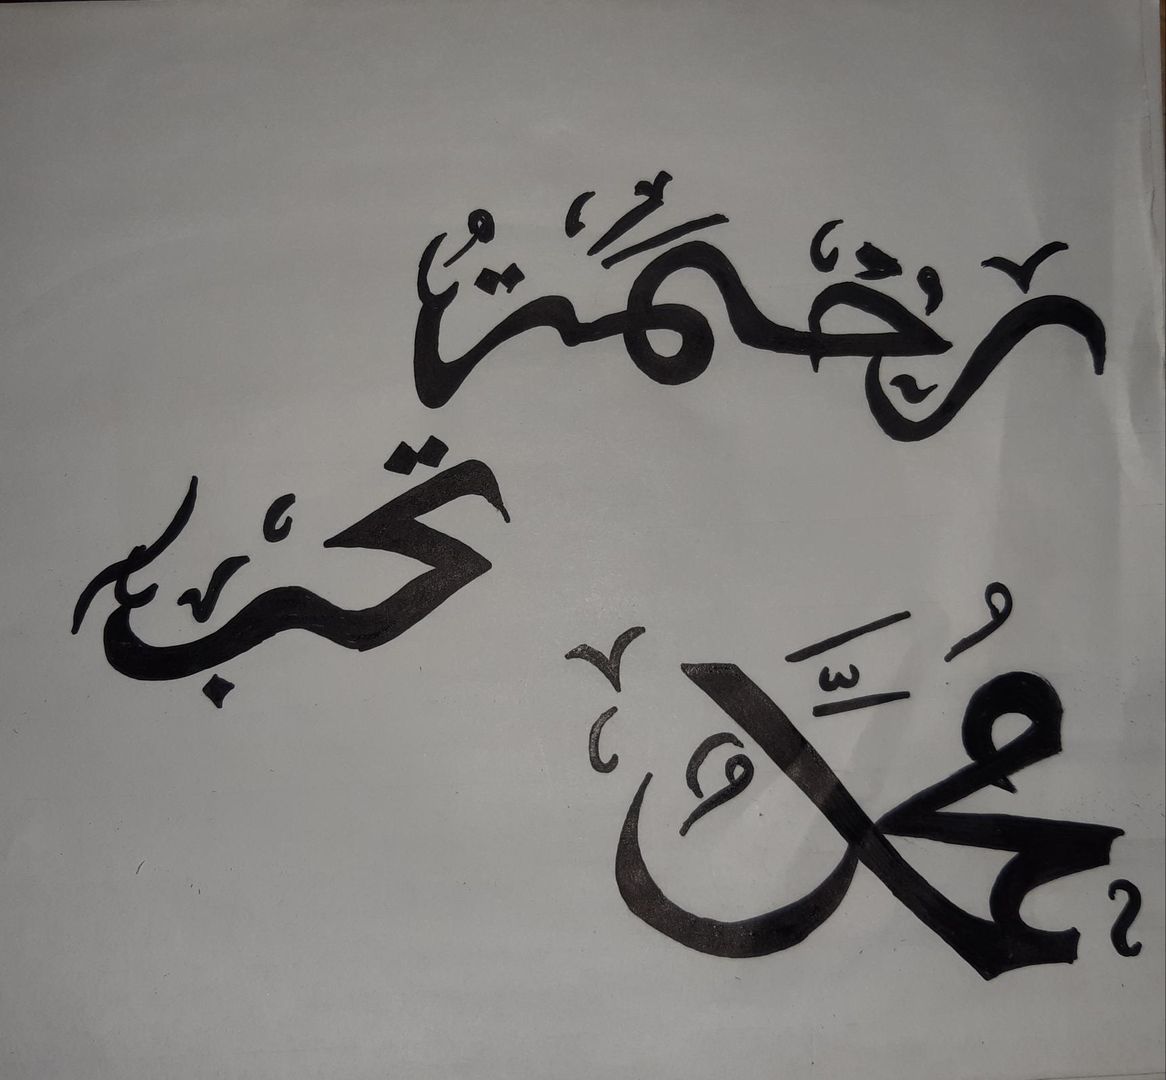 رَحْمَتُ
تحب
مُحَمَّدٌ